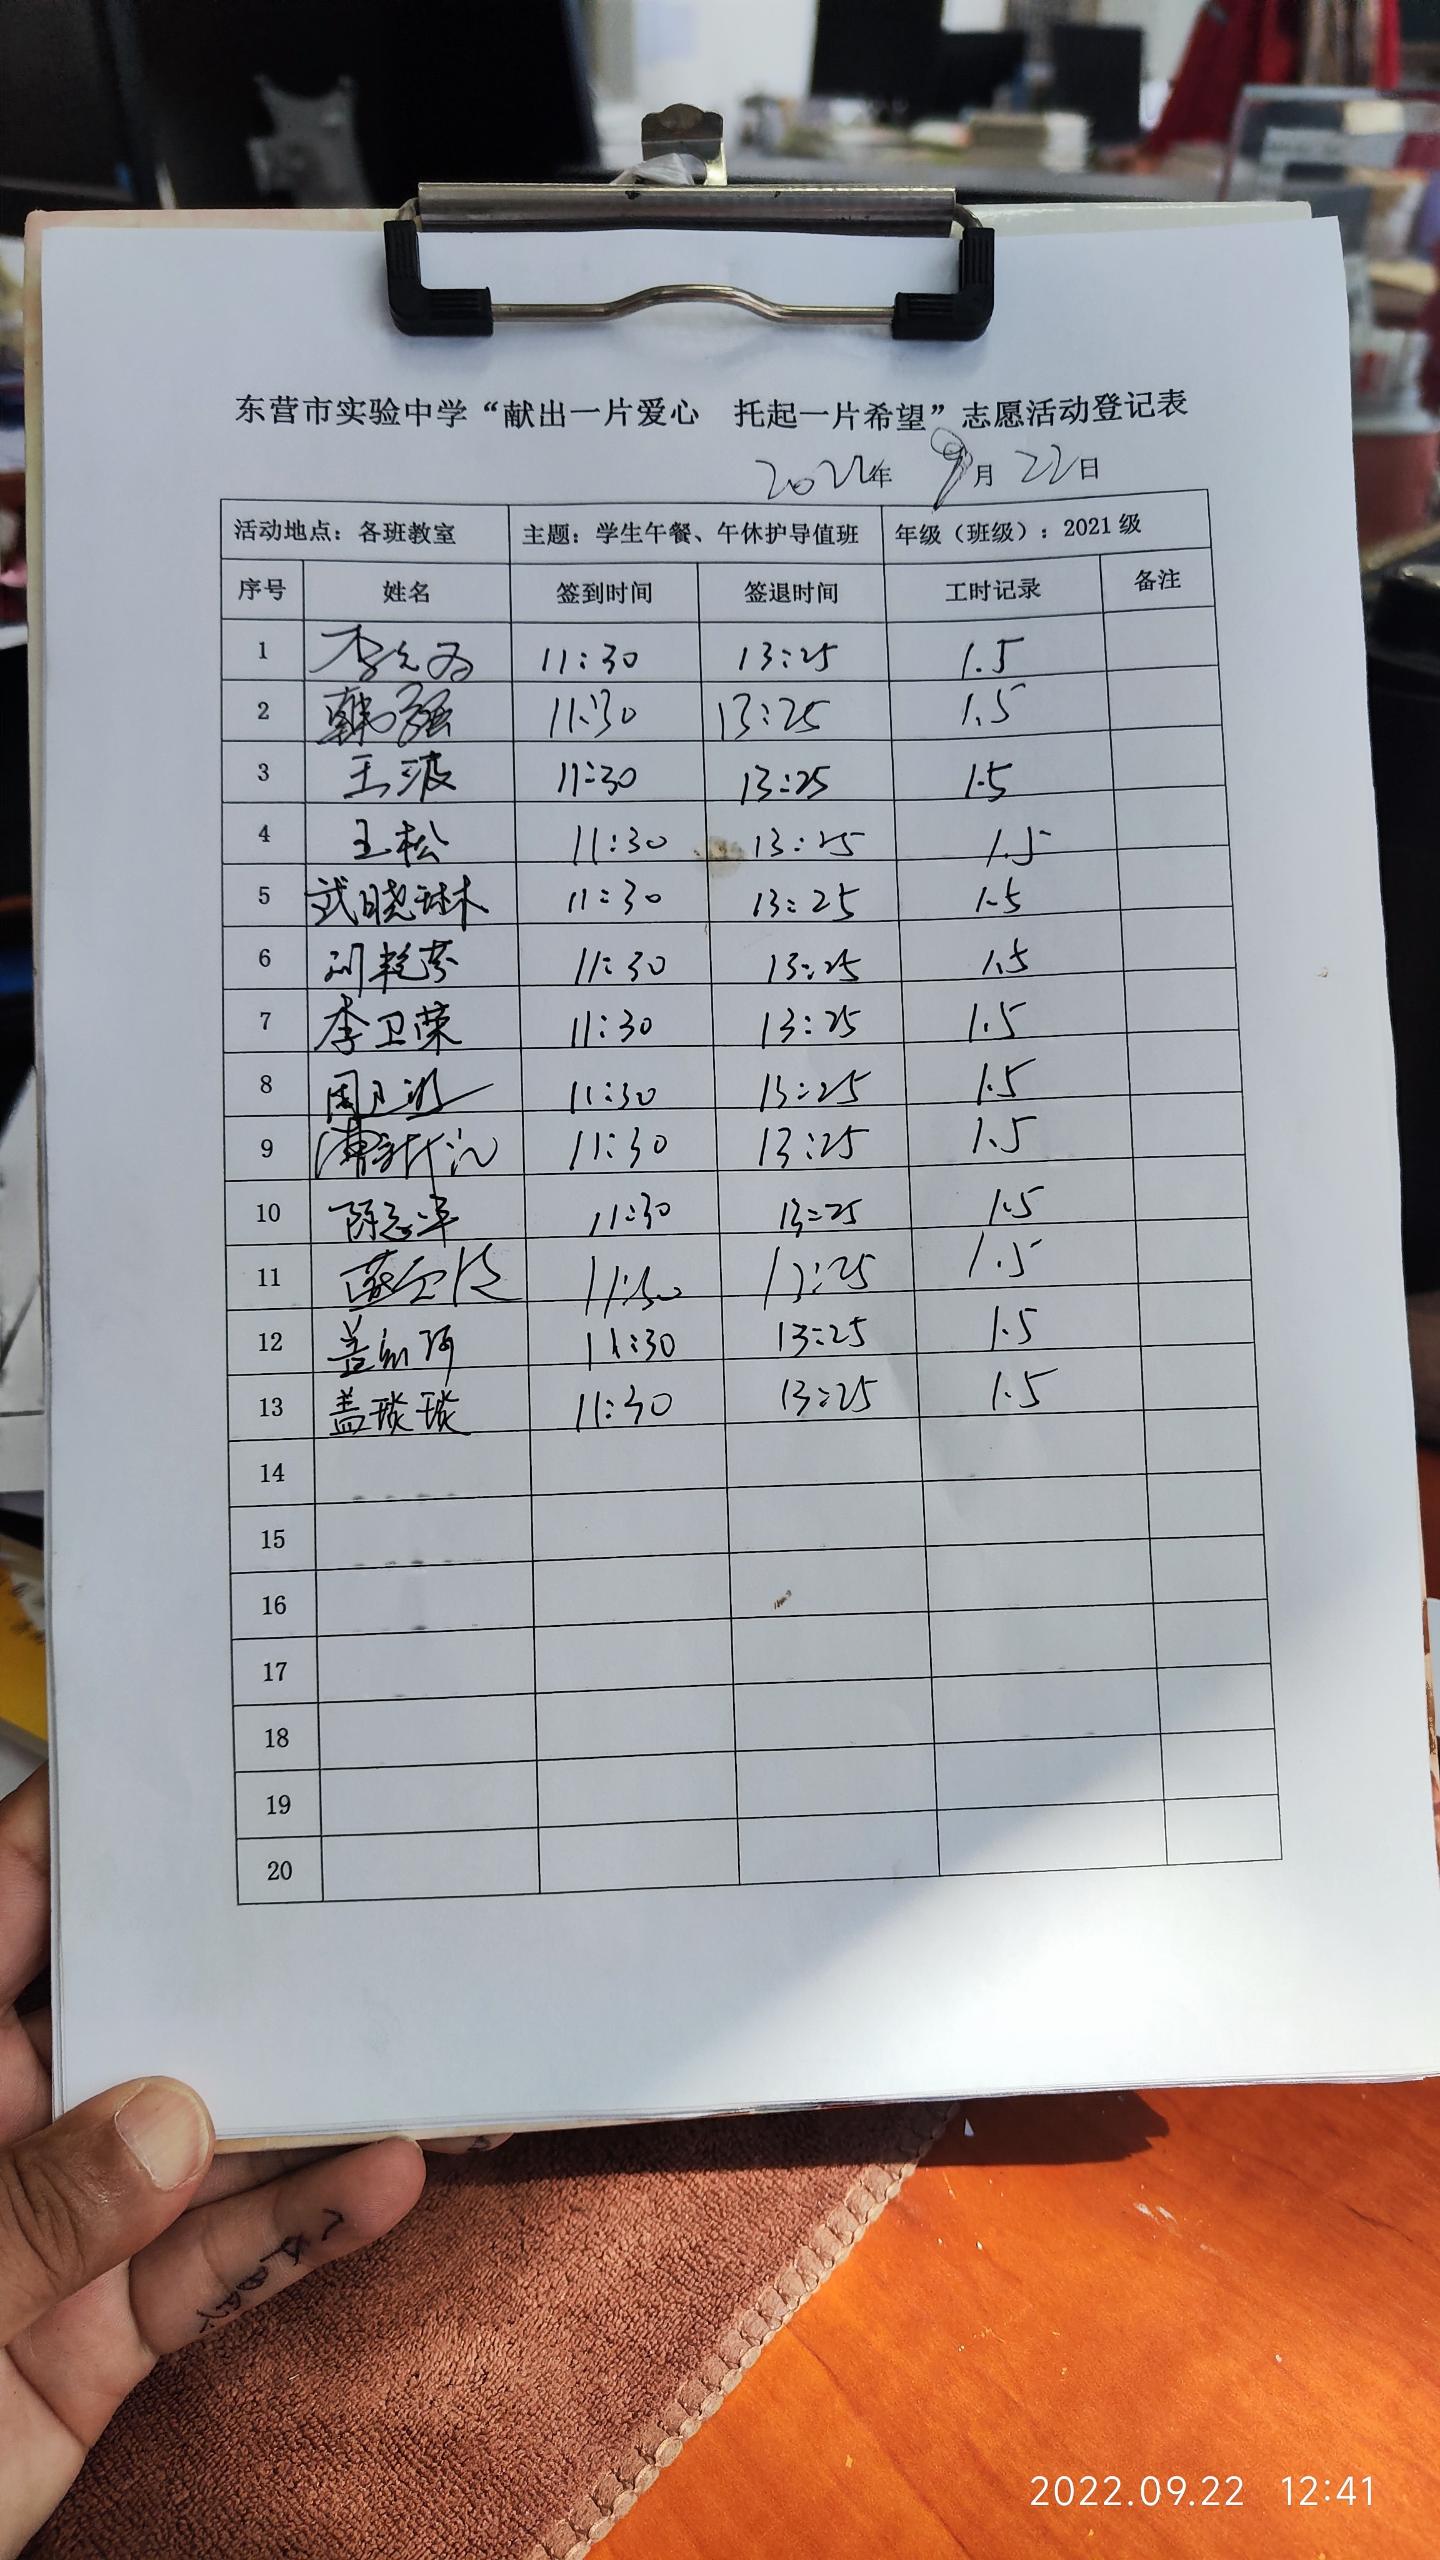 东营市实验中学“献出一片爱心 托起一片希望”志愿活动登记表
2022年 9月 22日
活动地点：各班教室 主题：学生午餐、午休护导值班 年级（班级）：2021级
序号 姓名 签到时间 签退时间 工时记录 备注
1 11:30 13:25 1.5
2 韩强 11:30 13:25 1.5
3 王波 11:30 13:25 1.5
4 王松 11:30 13:25 1.5
5 武晓琳 11:30 13:25 1.5
6 刘艳芬 11:30 13:25 1.5
7 李卫荣 11:30 13:25 1.5
8 11:30 13:25 1.5
9 11:30 13:25 1.5
10 陈志军 11:30 13:25 1.5
11 11:30 13:25 1.5
12 11:30 13:25 1.5
13 盖琰琰 11:30 13:25 1.5
14
15
16
17
18
19
20
2022.09.22 12:41